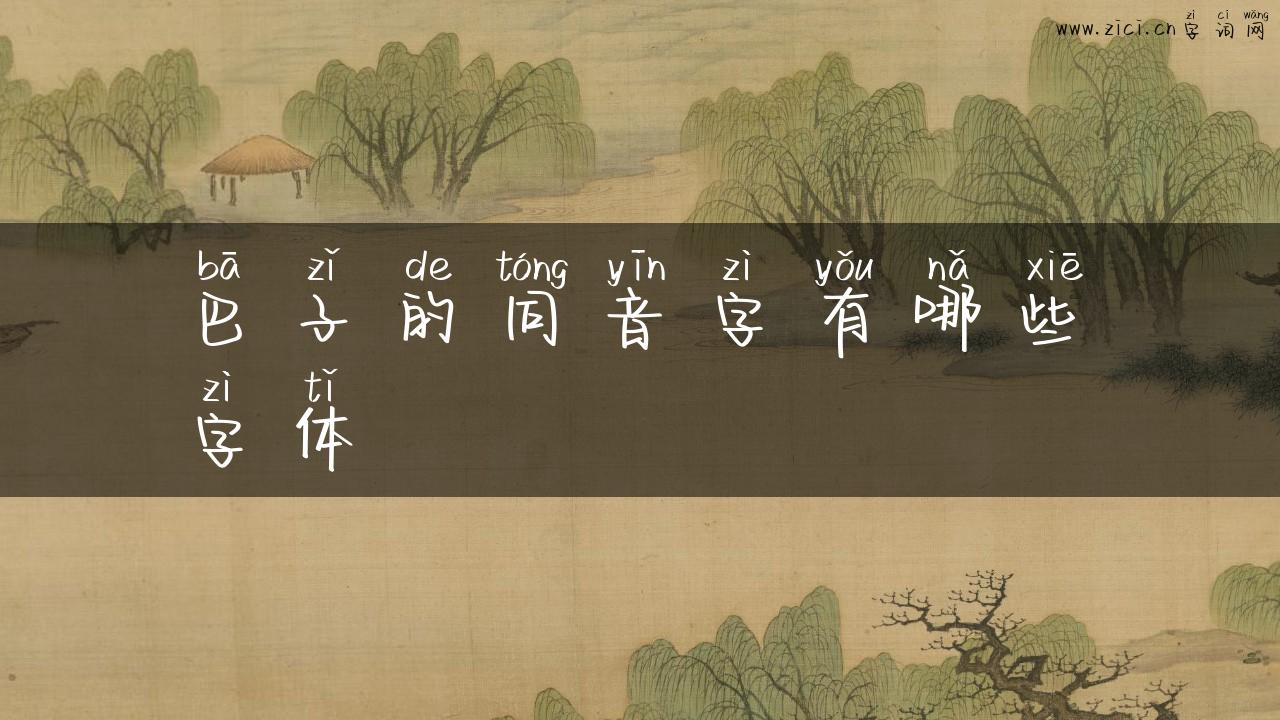 zì cí wǎng
www.zici.cn 字 词 网
bā zǐ de tóng yīn zì yǒu nǎ xiē
巴 子 的 同 音 字 有 哪 些
zì tǐ
字 体